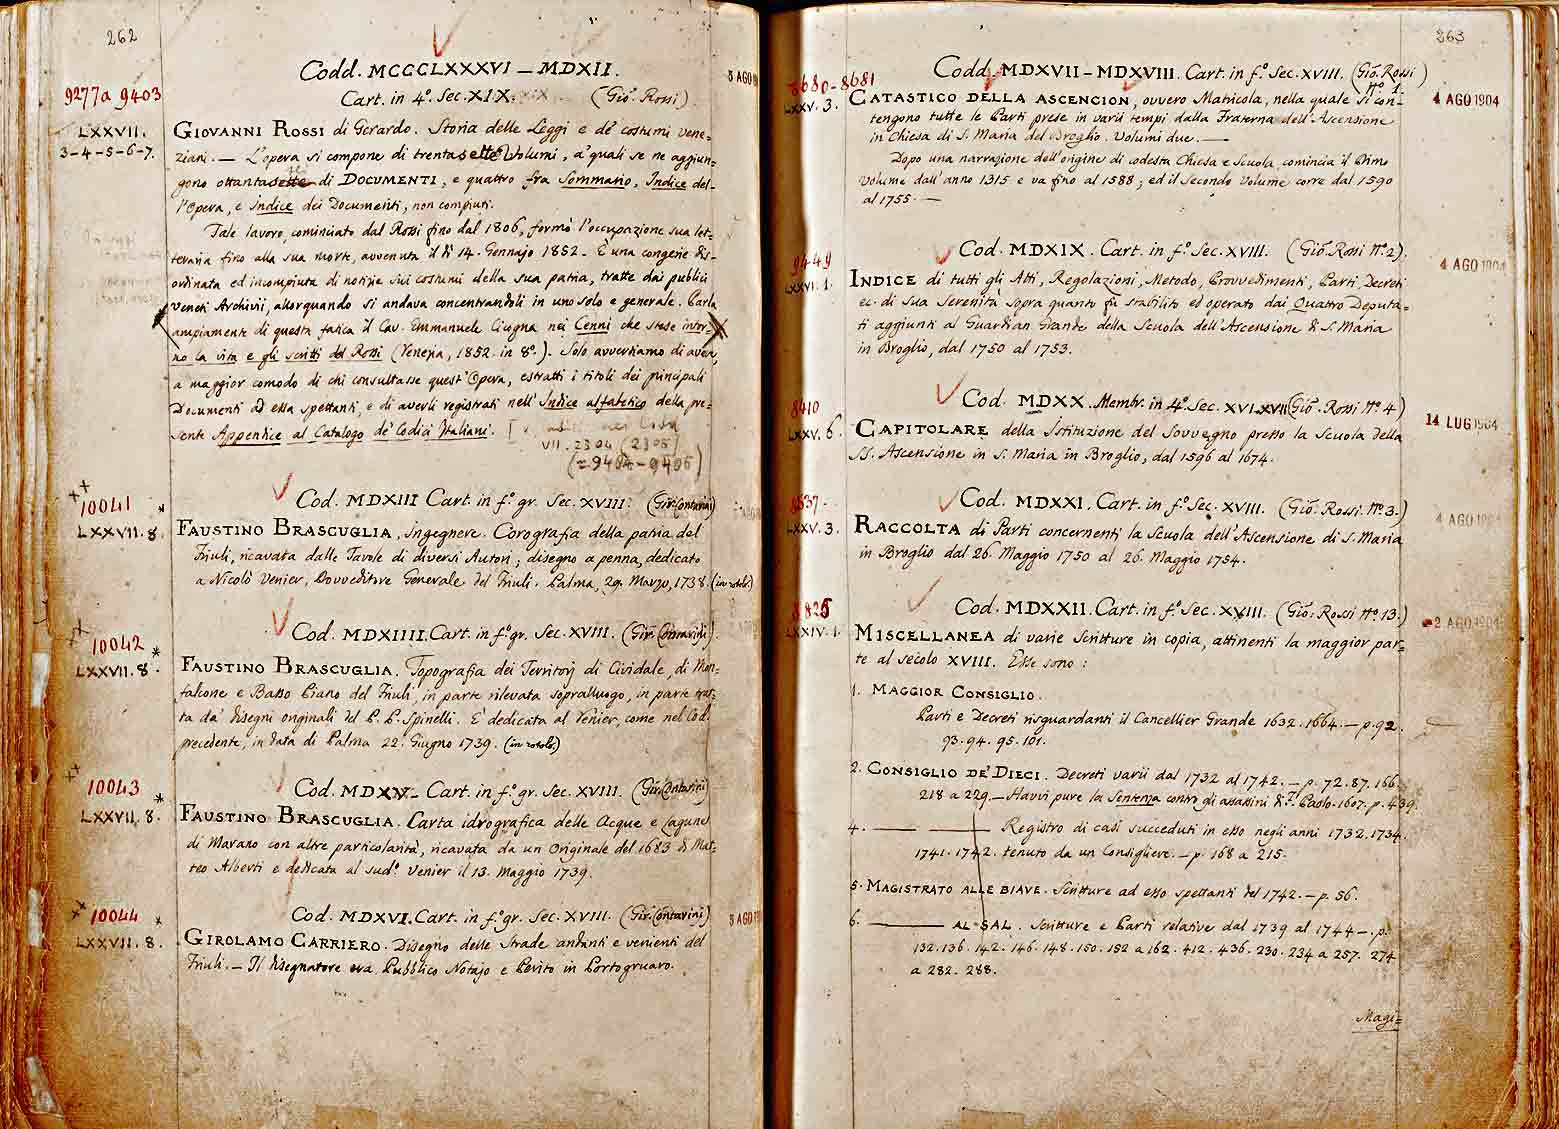 262
Codd. MCCCLXXXVI — MDXII.
Cart. in 4º. Sec. XIX. (Gio. Rossi)
9277 a 9403
LXXVII.
3-4-5-6-7.
5 AGO
GIOVANNI ROSSI di Gerardo. Storia delle Leggi e de' costumi vene=
ziani. — L'opera si compone di trentasette Volumi, a' quali se ne aggiun=
gono ottantasette di DOCUMENTI, e quattro fra Sommario, Indice del=
l'Opera, e Indice dei Documenti, non compiuti.
Tale lavoro, cominciato dal Rossi fino dal 1806, formò l'occupazione sua let=
teraria fino alla sua morte, avvenuta il dì 14. Gennajo 1852. È una congerie dis=
ordinata ed incompiuta di notizie sui costumi della sua patria, tratte dai pubblici
Veneti Archivii, allorquando si andava concentrandoli in uno solo e generale. Parla
ampiamente di questa fatica il Cav. Emmanuele Cicogna nei Cenni che stese intor=
no la vita e gli scritti del Rossi (Venezia, 1852. in 8º.). Solo avvertiamo di aver,
a maggior comodo di chi consultasse quest'Opera, estratti i titoli dei principali
Documenti ad essa spettanti, e di averli registrati nell'Indice alfabetico della pre=
sente Appendice al Catalogo de' Codici Italiani.
VII. 2304 (2305)
(= 9404-9405)
Cod. MDXIII Cart. in fº. gr. Sec. XVIII. (Gir. Contarini)
10041
LXXVII. 8.
FAUSTINO BRASCUGLIA, ingegnere. Corografia della patria del
Friuli, ricavata dalle Tavole di diversi Autori; disegno a penna, dedicato
a Nicolò Venier, Provveditore Generale del Friuli. Palma, 29. Marzo, 1738. (in rotolo.)
Cod. MDXIIII. Cart. in fº. gr. Sec. XVIII. (Gir. Contarini).
10042
LXXVII. 8.
FAUSTINO BRASCUGLIA. Topografia dei Territorj di Cividale, di Mon=
falcone e Basso Piano del Friuli, in parte rilevata sopralluogo, in parte trat=
ta da' disegni originali del P. P. Spinelli. È dedicata al Venier, come nel Cod.
precedente, in data di Palma 22. Giugno 1739. (in rotolo.)
Cod. MDXV. Cart. in fº. gr. Sec. XVIII. (Gir. Contarini)
10043
LXXVII. 8.
FAUSTINO BRASCUGLIA. Carta idrografica delle Acque e Lagune
di Marano con altre particolarità, ricavata da un Originale del 1683 di Mat=
teo Alberti e dedicata al sudº. Venier il 13. Maggio 1739.
Cod. MDXVI. Cart. in fº. gr. Sec. XVIII. (Gir. Contarini)
10044
LXXVII. 8.
5 AGO
GIROLAMO CARRIERO. Disegno delle Strade andanti e venienti del
Friuli. — Il disegnatore era Pubblico Notajo e Perito in Portogruaro.
263
Codd. MDXVII - MDXVIII. Cart. in fº. Sec. XVIII. (Gio. Rossi Nº 1.)
8680-8681
LXXV. 3.
4 AGO 1904
CATASTICO DELLA ASCENCION, ovvero Matricola, nella quale si con=
tengono tutte le Parti prese in varii tempi dalla Fraterna dell'Ascensione
in Chiesa di S. Maria del Broglio. Volumi due. —
Dopo una narrazione dell'origine di codesta Chiesa e Scuola, comincia il Primo
Volume dall'anno 1315 e va fino al 1588; ed il Secondo Volume corre dal 1590
al 1755. —
Cod. MDXIX. Cart. in fº. Sec. XVIII. (Gio. Rossi Nº 2).
9449
LXXVI. 1.
4 AGO 1904
INDICE di tutti gli Atti, Regolazioni, Metodo, Provvedimenti, Parti, Decreti
ec. di Sua Serenità sopra quanto fu stabilito ed operato dai Quattro Deputa=
ti aggiunti al Guardian Grande della Scuola dell'Ascensione di S. Maria
in Broglio, dal 1750 al 1753.
Cod. MDXX. Membr. in 4º. Sec. XVI-XVII (Gio. Rossi Nº 4)
8410
LXXV. 6.
14 LUG 1904
CAPITOLARE della Istituzione del Sovvegno presso la Scuola della
SS. Ascensione in S. Maria in Broglio, dal 1596 al 1674.
Cod. MDXXI. Cart. in fº. Sec. XVIII. (Gio. Rossi. Nº 3.)
8637.
LXXV. 3.
4 AGO 1904
RACCOLTA di Parti concernenti la Scuola dell'Ascensione di S. Maria
in Broglio dal 26. Maggio 1750 al 26. Maggio 1754.
Cod. MDXXII. Cart. in fº. Sec. XVIII. (Gio. Rossi Nº 13.)
8825
LXXIV. 1.
2 AGO 1904
MISCELLANEA di varie Scritture in copia, attinenti la maggior par=
te al secolo XVIII. Esse sono:
1. MAGGIOR CONSIGLIO.
Parti e Decreti risguardanti il Cancellier Grande 1632. 1664. — p. 92.
93. 94. 95. 101.
2. CONSIGLIO DE' DIECI. Decreti varii dal 1732 al 1742. — p. 72. 87. 166.
218 a 229. — Havvi pure la Sentenza contro gli assassini di F. Paolo. 1607. p. 439.
4. — — Registro di casi succeduti in esso negli anni 1732. 1734.
1741. 1742. tenuto da un Consigliere. — p. 168 a 215.
5. MAGISTRATO ALLE BIAVE. Scritture ad esso spettanti del 1742. — p. 56.
6. — AL SAL. Scritture e Parti relative dal 1739 al 1744 —. p.
132. 136. 142. 146. 148. 150. 152 a 162. 412. 436. 230. 234 a 257. 274
a 282. 288.
Magi=